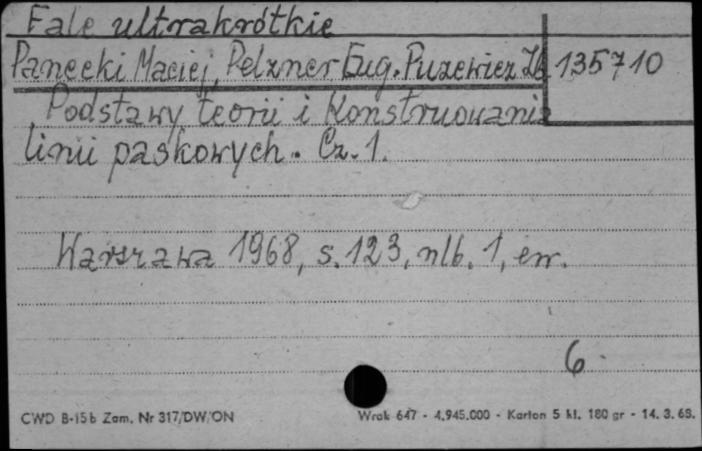 Fale ultrakrótkie
Panecki Maciej, Pelzner Eug. Puzewicz Zb. 135710
Podstawy teorii i konstruowania
linii paskowych. Cz. 1.
Warszawa 1968, s. 123, nlb. 1, err.
6
CWD B-15b Zam. Nr 317/DW/ON Wrak 647 - 4.945.000 - Karton 5 kl. 180 gr - 14. 3. 68.